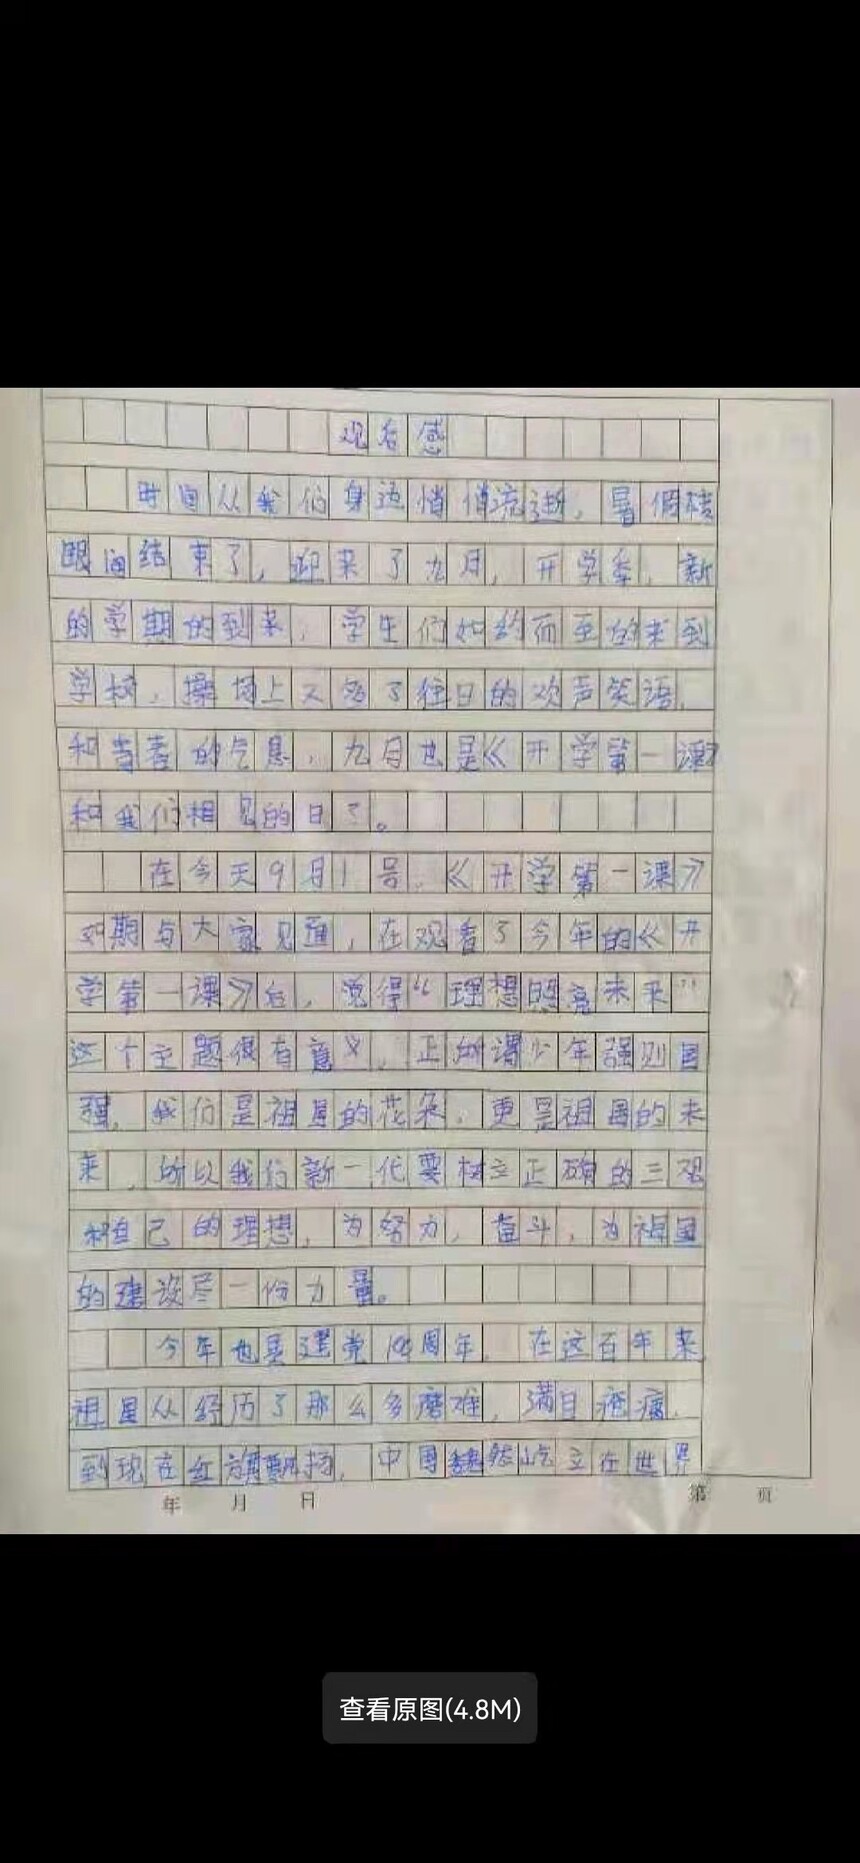 观后感
时间从我们身边悄悄流逝,暑假转
眼间结束了,迎来了九月,开学季,新
的学期的到来,学生们如约而至的来到
学校,操场上又多了往日的欢声笑语,
和青春的气息,九月也是《开学第一课》
和我们相见的日子。
在今天9月1号,《开学第一课》
如期与大家见面,在观看了今年的《开
学第一课》后,觉得“理想照亮未来”
这个主题很有意义,正所谓少年强则国
强,我们是祖国的花朵,更是祖国的未
来,所以我们新一代要树立正确的三观
和自己的理想,为努力,奋斗,为祖国
的建设尽一份力量。
今年也是建党100周年,在这百年来
祖国从经历了那么多磨难,满目疮痍,
到现在红旗飘扬,中国巍然屹立在世界
年 月 日 第 页
查看原图(4.8M)